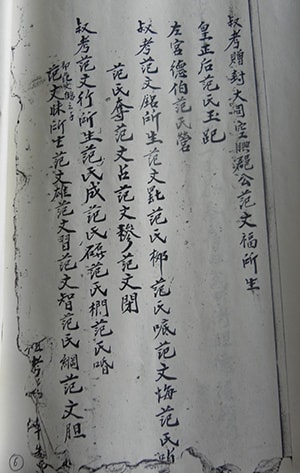 叔考贈封大司空郡公范文福所生
皇正后范氏玉
左宫德伯范氏營
叔考范文銘所生范文點范氏椰范氏 范文悔范氏
范氏奪范文占范文穆范文閉
叔考范文行所生范氏成范氏 范氏椚范氏㖧
范文眛所生范文雄范文習范文智范氏綱范文胆
祖考
6